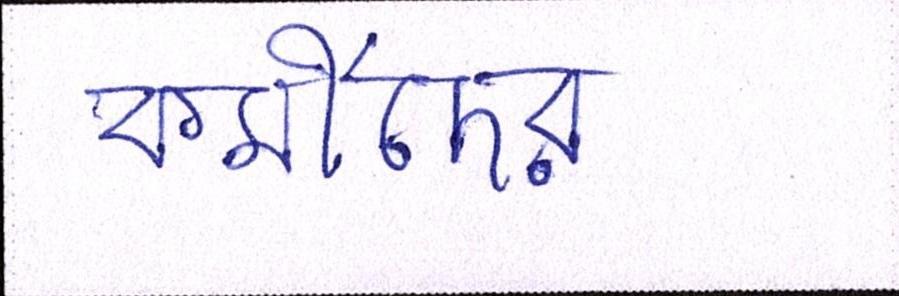 কর্মীদের